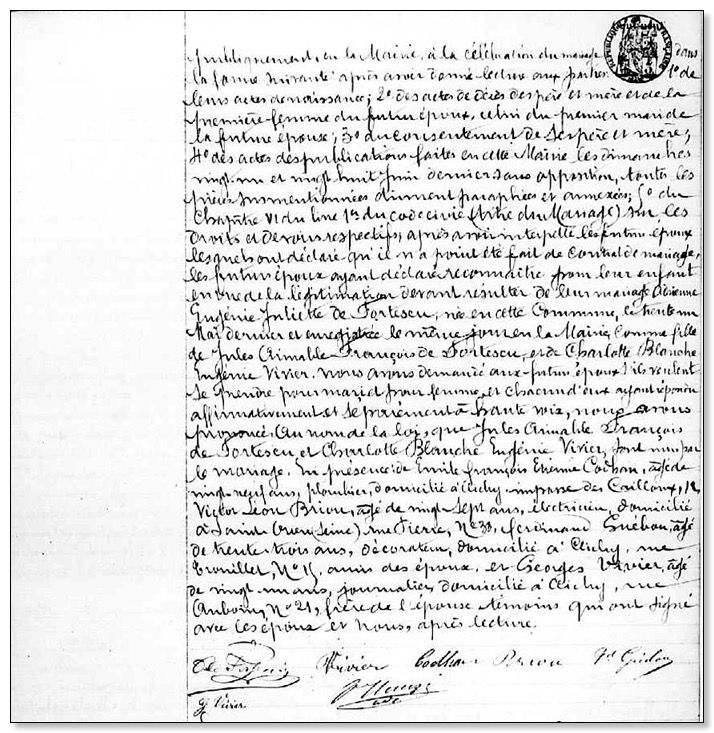 publiquement, en la Mairie, à la célébration du mariage dans
la forme suivante: après avoir donné lecture aux parties: 1º de
leurs actes de naissance; 2º des actes de décès des père et mère et de la
première femme du futur époux, celui du premier mari de
la future épouse; 3º du consentement de ses père et mère;
4º des actes des publications faites en cette Mairie les dimanches
vingt un et vingt huit Juin dernier sans opposition, toutes les
pièces susmentionnées dûment paraphées et annexées; 5º du
Chapitre VI du livre 1er du code civil (titre du Mariage) sur les
droits et devoirs respectifs; après avoir interpellé les futurs époux
lesquels ont déclaré qu'il n'a point été fait de contrat de mariage,
les futurs époux ayant déclaré reconnaître pour leur enfant
en vue de la légitimation devant résulter de leur mariage
Eugénie Juliette de Fortescu, née en cette Commune, le trente un
Mai dernier et enregistrée le même jour en la Mairie, comme fille
de Jules Aimable François de Fortescu, et de Charlotte Blanche
Eugénie Vivier. Nous avons demandé aux futurs époux s'ils veulent
se prendre pour mari et pour femme, et chacun d'eux ayant répondu
affirmativement et séparément à haute voix, nous avons
prononcé, au nom de la loi, que Jules Aimable François
de Fortescu, et Charlotte Blanche Eugénie Vivier, sont unis par
le mariage. En présence de Emile François Etienne âgé de
vingt neuf ans, plombier, domicilié à Clichy impasse des Cailloux, 12,
Victor Léon Briou, âgé de vingt sept ans, électricien, domicilié
à Saint Ouen (Seine) rue Pierre, Nº 30, Ferdinand âgé
de trente trois ans, décorateur, domicilié à Clichy, rue
Trouillet, Nº 15, amis des époux, et Georges Vivier, âgé
de vingt un ans, journalier, domicilié à Clichy, rue
Nº 21, frère de l'épouse témoins qui ont signé
avec les époux et Nous, après lecture.
Vivier Briou
G Vivier